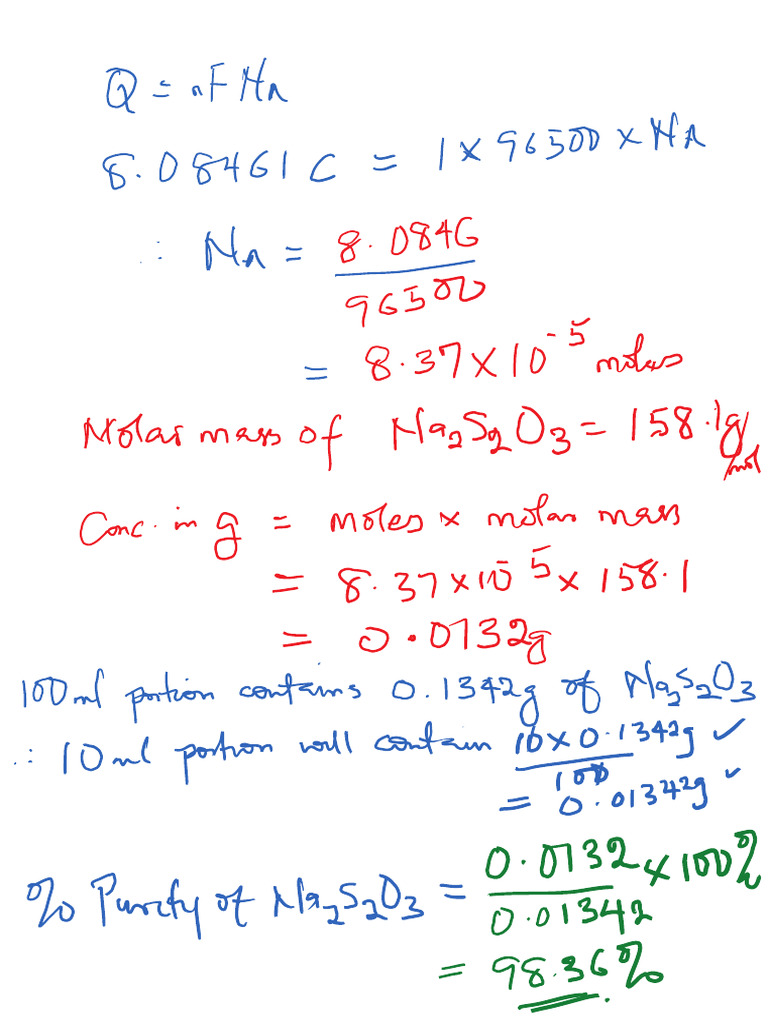 Q = nFNA
8.08461 C = 1 × 96500 × NA
∴ NA = 8.0846
96500
= 8.37 × 10⁻⁵ moles
Molar mass of Na₂S₂O₃ = 158.1g/mol
Conc. in g = moles × molar mass
= 8.37 × 10⁻⁵ × 158.1
= 0.0132g
100ml portion contains 0.1342g of Na₂S₂O₃
∴ 10ml portion will contain 10 × 0.1342g ✓
100
= 0.01342g ✓
% Purity of Na₂S₂O₃ = 0.0132 × 100%
0.01342
= 98.36%